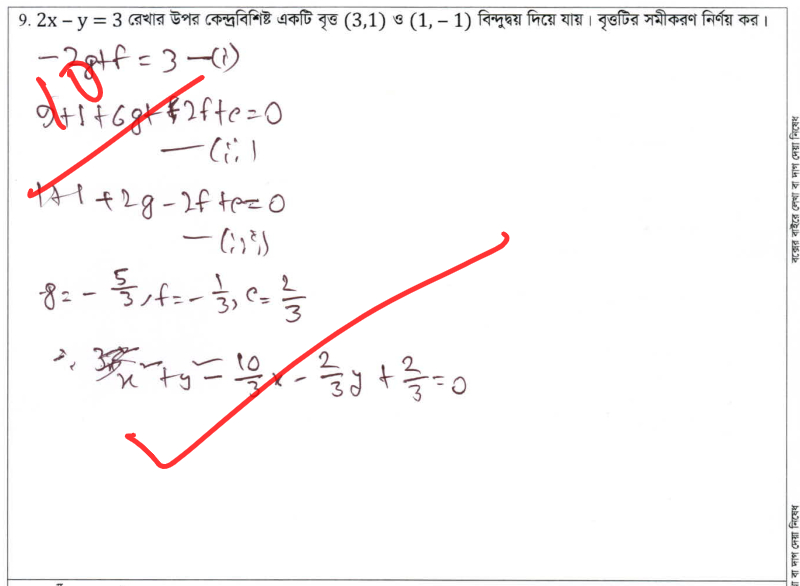 9. 2x – y = 3 রেখার উপর কেন্দ্রবিশিষ্ট একটি বৃত্ত (3,1) ও (1, – 1) বিন্দুদ্বয় দিয়ে যায়। বৃত্তটির সমীকরণ নির্ণয় কর।
-2g+f = 3 —(i)
10
9+1+6g+2f+c=0
—(ii)
1+1 +2g-2f+c=0
—(iii)
g= -5/3, f= -1/3, c= 2/3
∴ x²+y² - 10/3 x - 2/3 y + 2/3 = 0
বক্সের বাইরে লেখা বা দাগ দেয়া নিষেধ
বা দাগ দেয়া নিষেধ